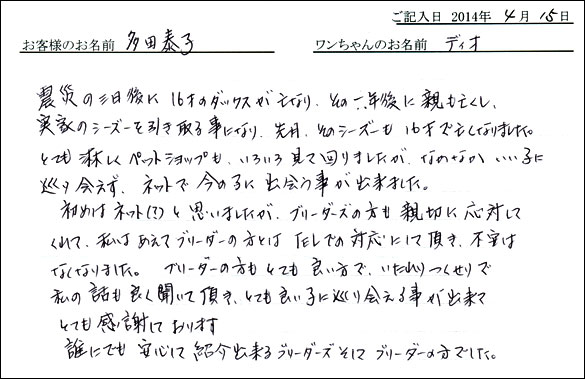 ご記入日 2014年 4月 15日
お客様のお名前 多田泰子 ワンちゃんのお名前 ディオ
震災の三日後に 16才のダックスが亡くなり、その一年後に 親も亡くし、
実家のシーズーを引き取る事になり、先月、そのシーズーも 16才で亡くなりました。
とても 淋しく ペットショップも、いろいろ 見て回りましたが、なかなか いい子に
巡り会えず、ネットで 今の子に 出会う事が出来ました。
初めは ネット(?)と 思いましたが、ブリーダーズの方も 親切に 応対して
くれて、私は あえて ブリーダーの方とは TELでの 対応にして 頂き、不安は
なくなりました。 ブリーダーの方も とても 良い方で、いたれりつくせりで
私の 話も 良く 聞いて 頂き、とても良い子に 巡り会える事が出来て
とても 感謝しております
誰にでも 安心して 紹介出来る ブリーダーズ そして ブリーダーの方でした。